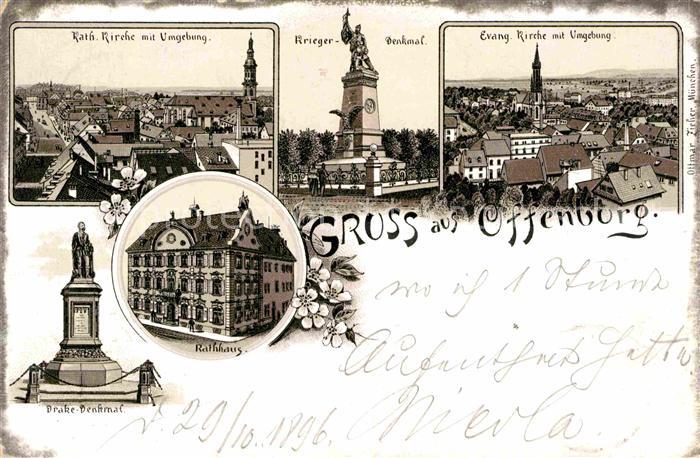 Kath. Kirche mit Umgebung.
Krieger- Denkmal.
Evang. Kirche mit Umgebung.
Ottmar Zieher, München.
GRUSS aus Offenburg.
Rathhaus.
Drake-Denkmal.
wo ich 1 Stunde
Aufenthalt hatte
d. 29/10. 1896.